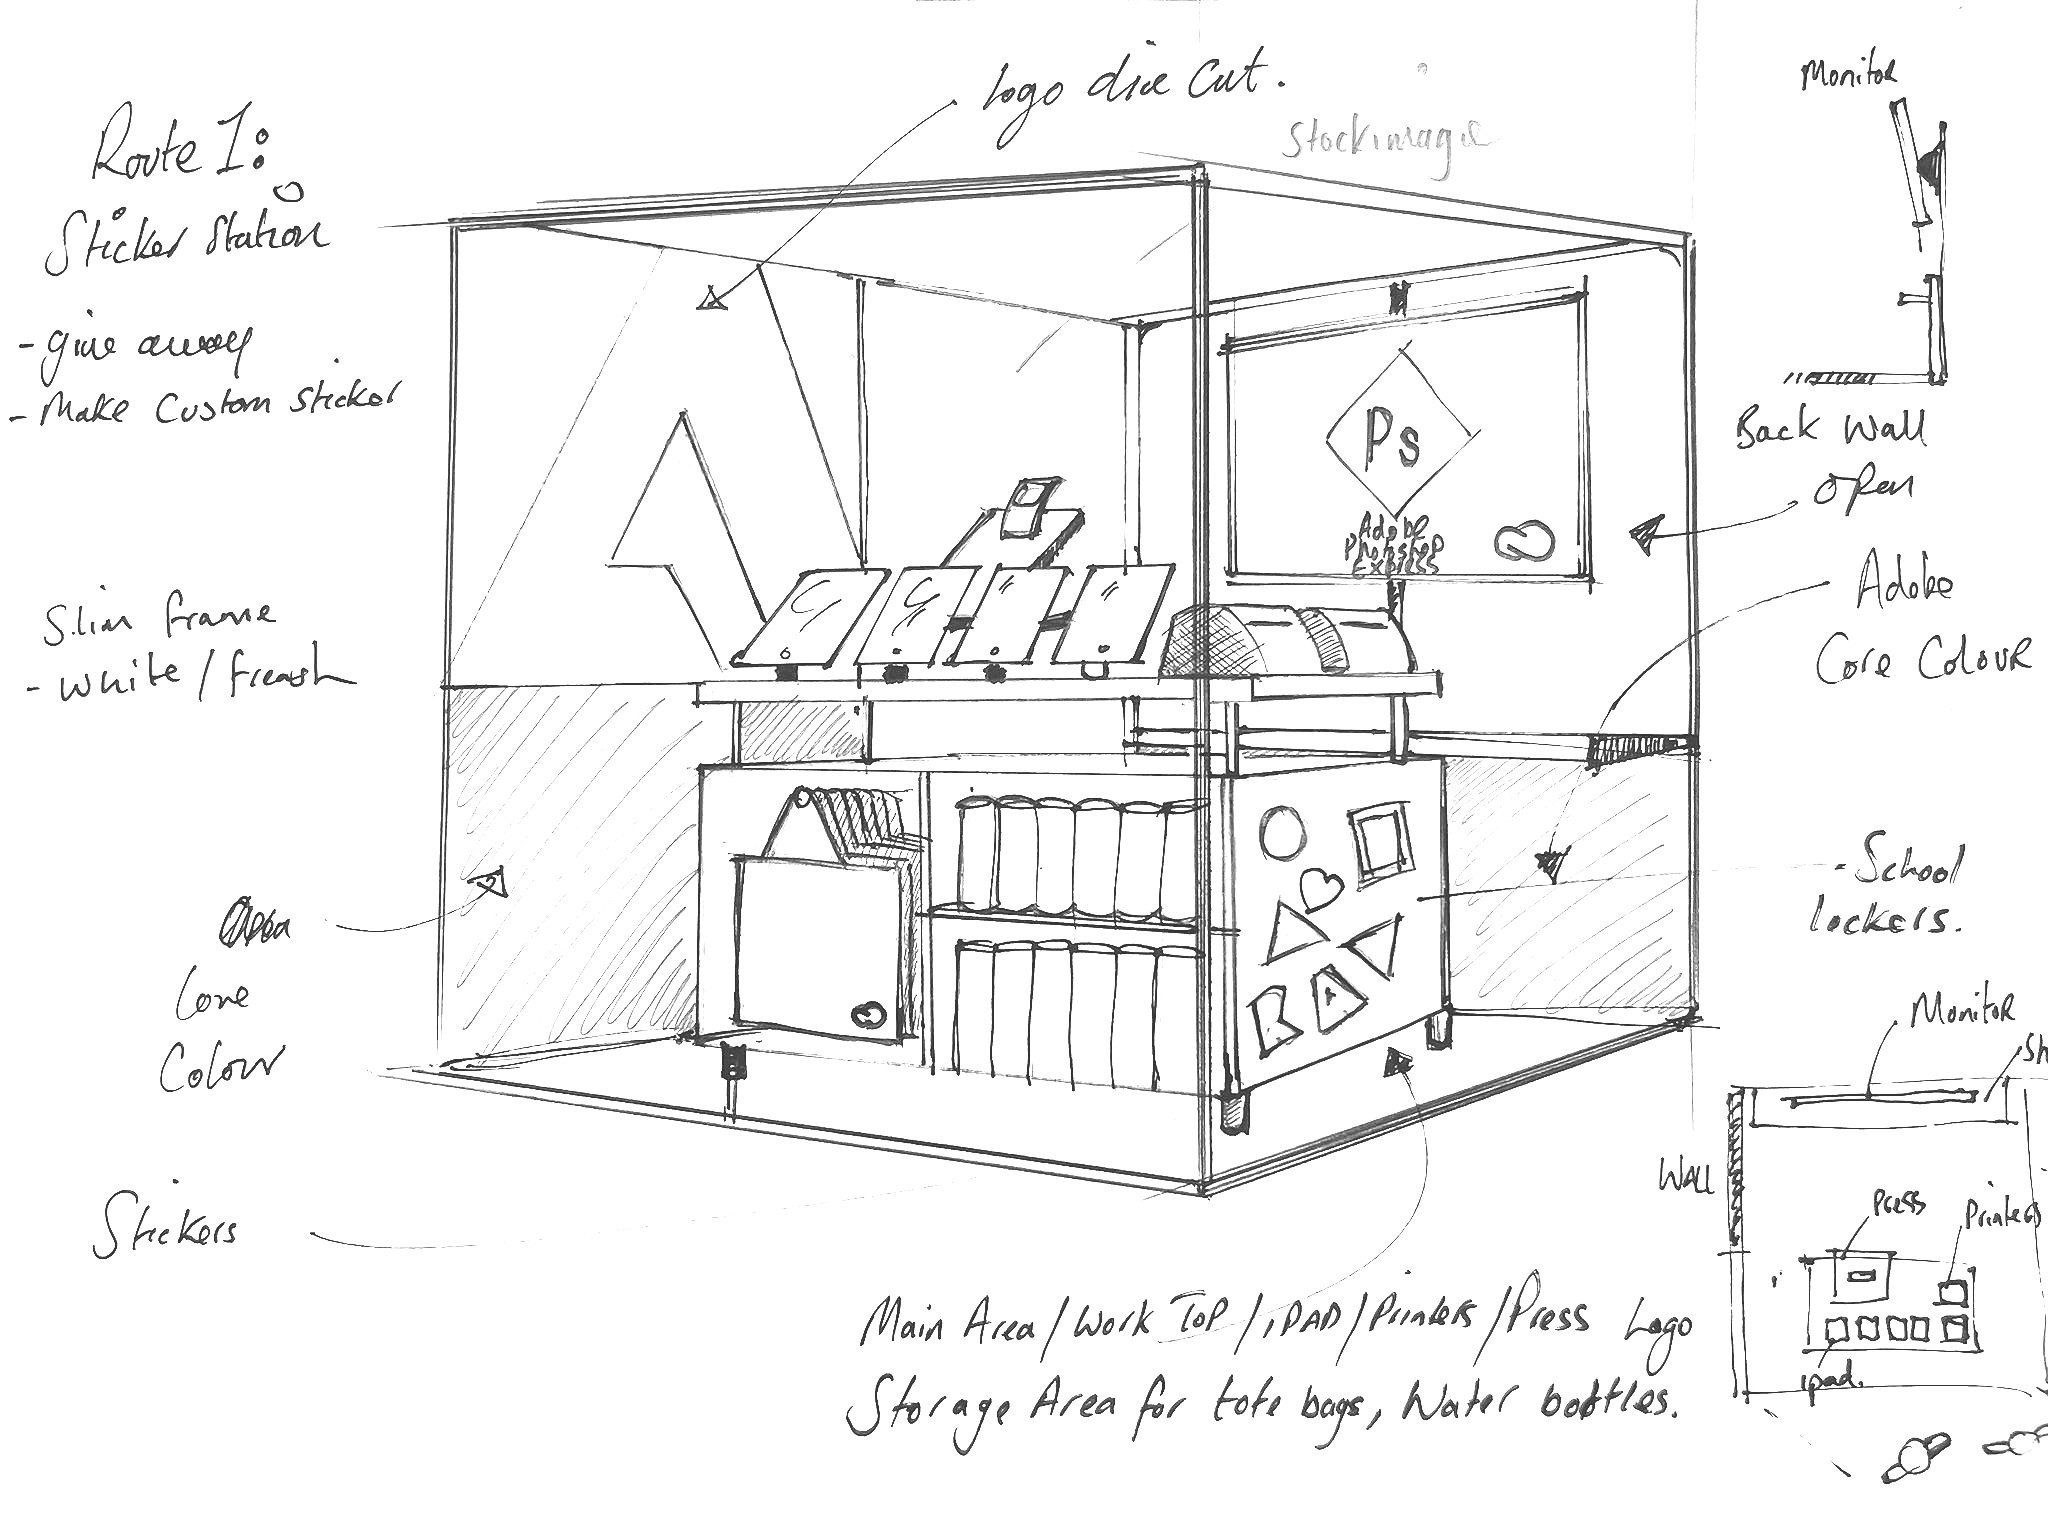 Route 1:
Sticker Station
- give away
- Make Custom Sticker
Slim frame
- White / freash
Core
Colour
Stickers
Logo die cut.
Stockimage
Ps
Adobe
Photoshop
Express
Monitor
Back Wall
open
Adobe
Core Colour
- School
lockers.
Monitor
Sh
Wall
Press
Printers
ipad.
Main Area / Work Top / iPAD / Printers / Press Logo
Storage Area for tote bags, Water bottles.